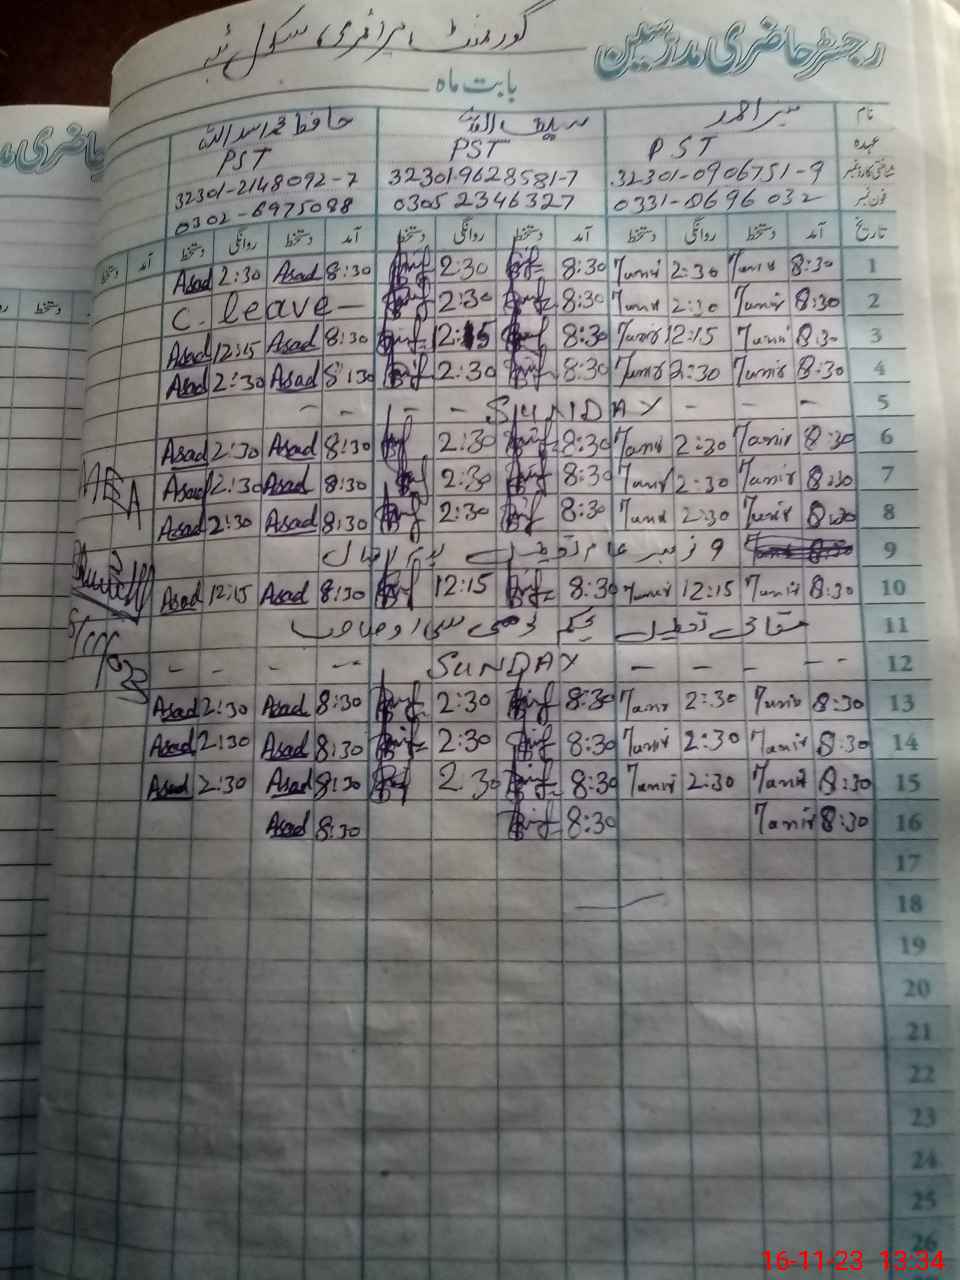 رجسٹر حاضری مدرسین
گورنمنٹ پرائمری سکول
بابت ماہ
نام منیر احمد سیف اللہ حافظ محمد اسد اللہ
عہدہ PST PST PST
شناختی کارڈ نمبر 32301-0906751-9 32301-9628581-7 32301-2148092-7
فون نمبر 0331-0696032 0305 2346327 0302-6975088
تاریخ آمد دستخط روانگی دستخط آمد دستخط روانگی دستخط آمد دستخط روانگی دستخط آمد دستخط
1 8:30 Munir 2:30 Munir 8:30 2:30 8:30 Asad 2:30 Asad
2 8:30 Munir 2:30 Munir 8:30 2:30 C. leave —
3 8:30 Munir 12:15 Munir 8:30 12:15 8:30 Asad 12:15 Asad
4 8:30 Munir 2:30 Munir 8:30 2:30 8:30 Asad 2:30 Asad
5 - - - SUNDAY - - - -
6 8:30 Munir 2:30 Munir 8:30 2:30 8:30 Asad 2:30 Asad
7 8:30 Munir 2:30 Munir 8:30 2:30 8:30 Asad 2:30 Asad
8 8:30 Munir 2:30 Munir 8:30 2:30 8:30 Asad 2:30 Asad
9 9 نومبر عام تعطیل یوم اقبال
10 8:30 Munir 12:15 Munir 8:30 12:15 8:30 Asad 12:15 Asad
11 مقامی تعطیل بحکم ڈی سی او صاحب
12 - - - - SUNDAY - - - -
13 8:30 Munir 2:30 Munir 8:30 2:30 8:30 Asad 2:30 Asad
14 8:30 Munir 2:30 Munir 8:30 2:30 8:30 Asad 2:30 Asad
15 8:30 Munir 2:30 Munir 8:30 2:30 8:30 Asad 2:30 Asad
16 8:30 Munir 8:30 8:30 Asad
17
18
19
20
21
22
23
24
25
26
AEA
16-11-23 13:34